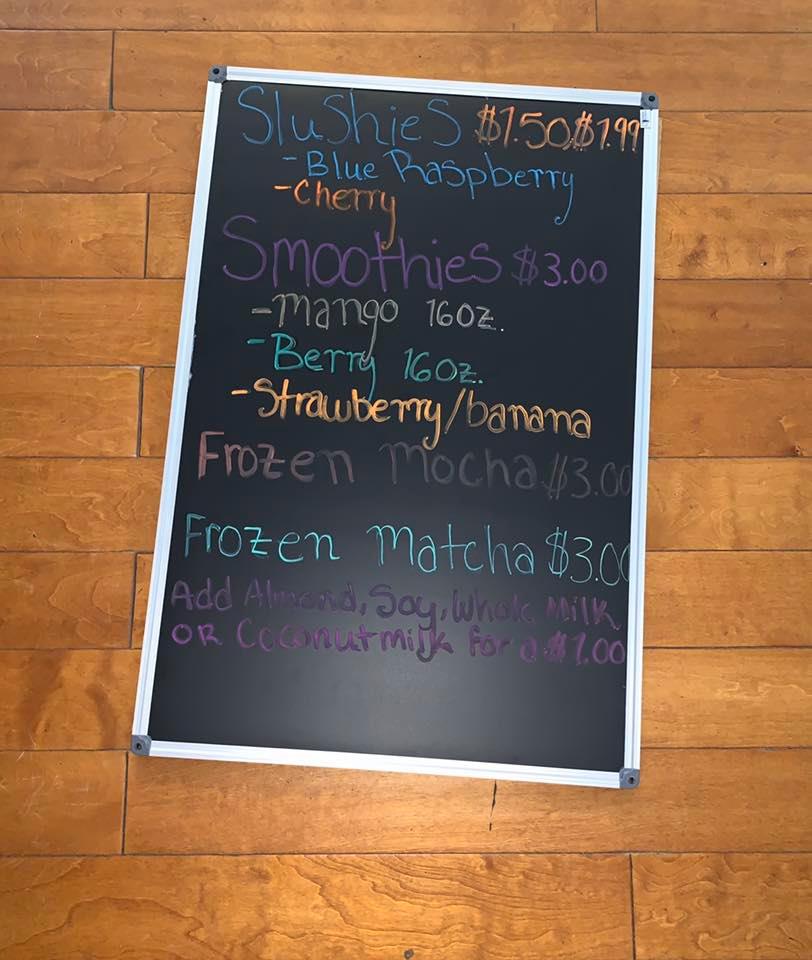 Slushies $1.50,$1.99
-Blue Raspberry
-Cherry
Smoothies $3.00
-Mango 16oz.
-Berry 16oz.
-Strawberry/banana
Frozen Mocha $3.00
Frozen Matcha $3.00
Add Almond, Soy, Whole Milk
OR Coconutmilk for a $1.00